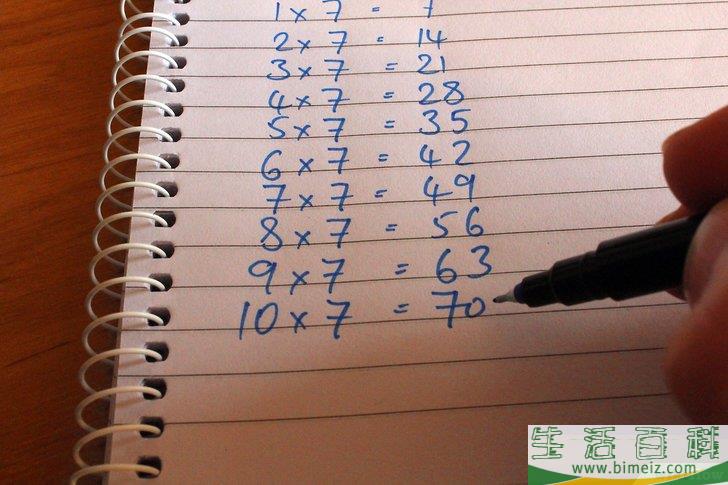 1 x 7 = 7
2 x 7 = 14
3 x 7 = 21
4 x 7 = 28
5 x 7 = 35
6 x 7 = 42
7 x 7 = 49
8 x 7 = 56
9 x 7 = 63
10 x 7 = 70
生活百科
www.bimeiz.com